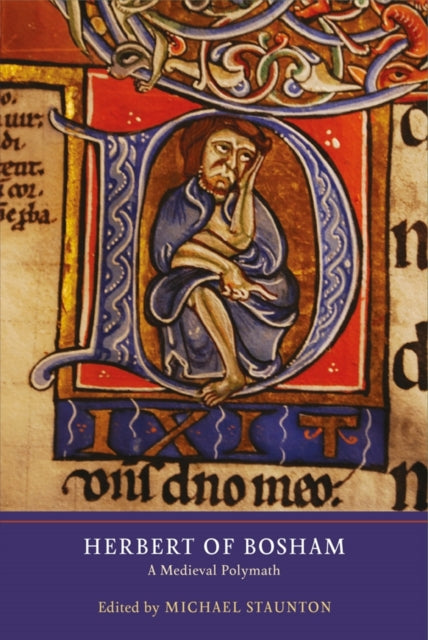 D
IXIT
dñs dno meo.
HERBERT OF BOSHAM
A Medieval Polymath
Edited by MICHAEL STAUNTON